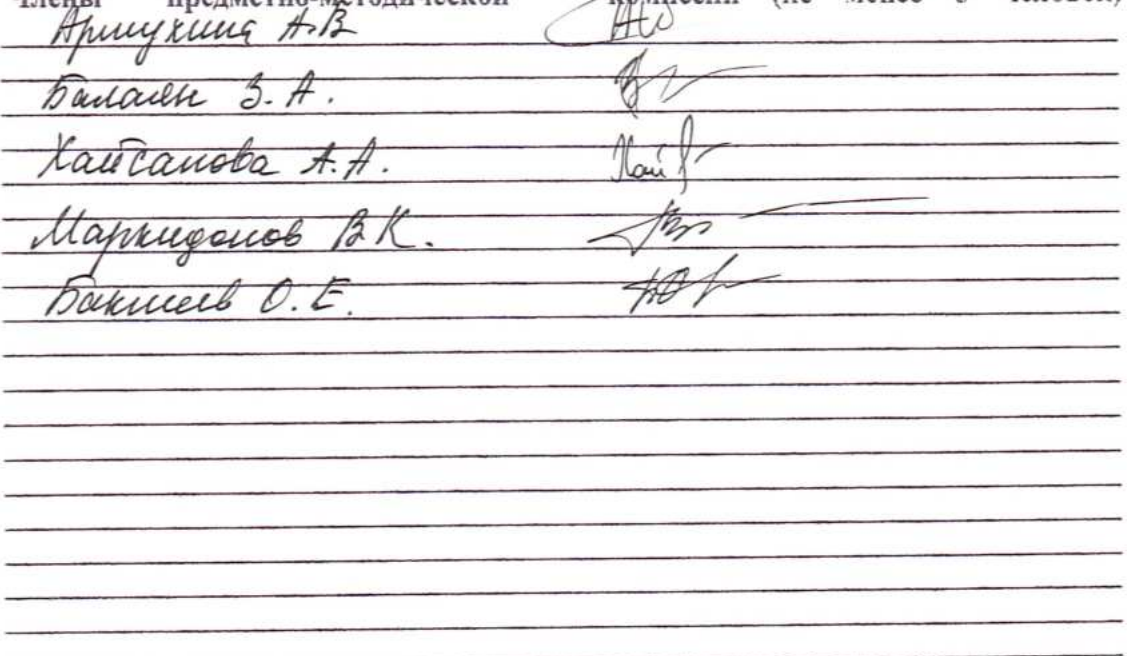 Члены предметно-методической комиссии (не менее 5 человек)
Армухина А.В
Балаян З.А.
Хайсанова А.А.
Маркидонов В.К.
Бакшеев О.Е.